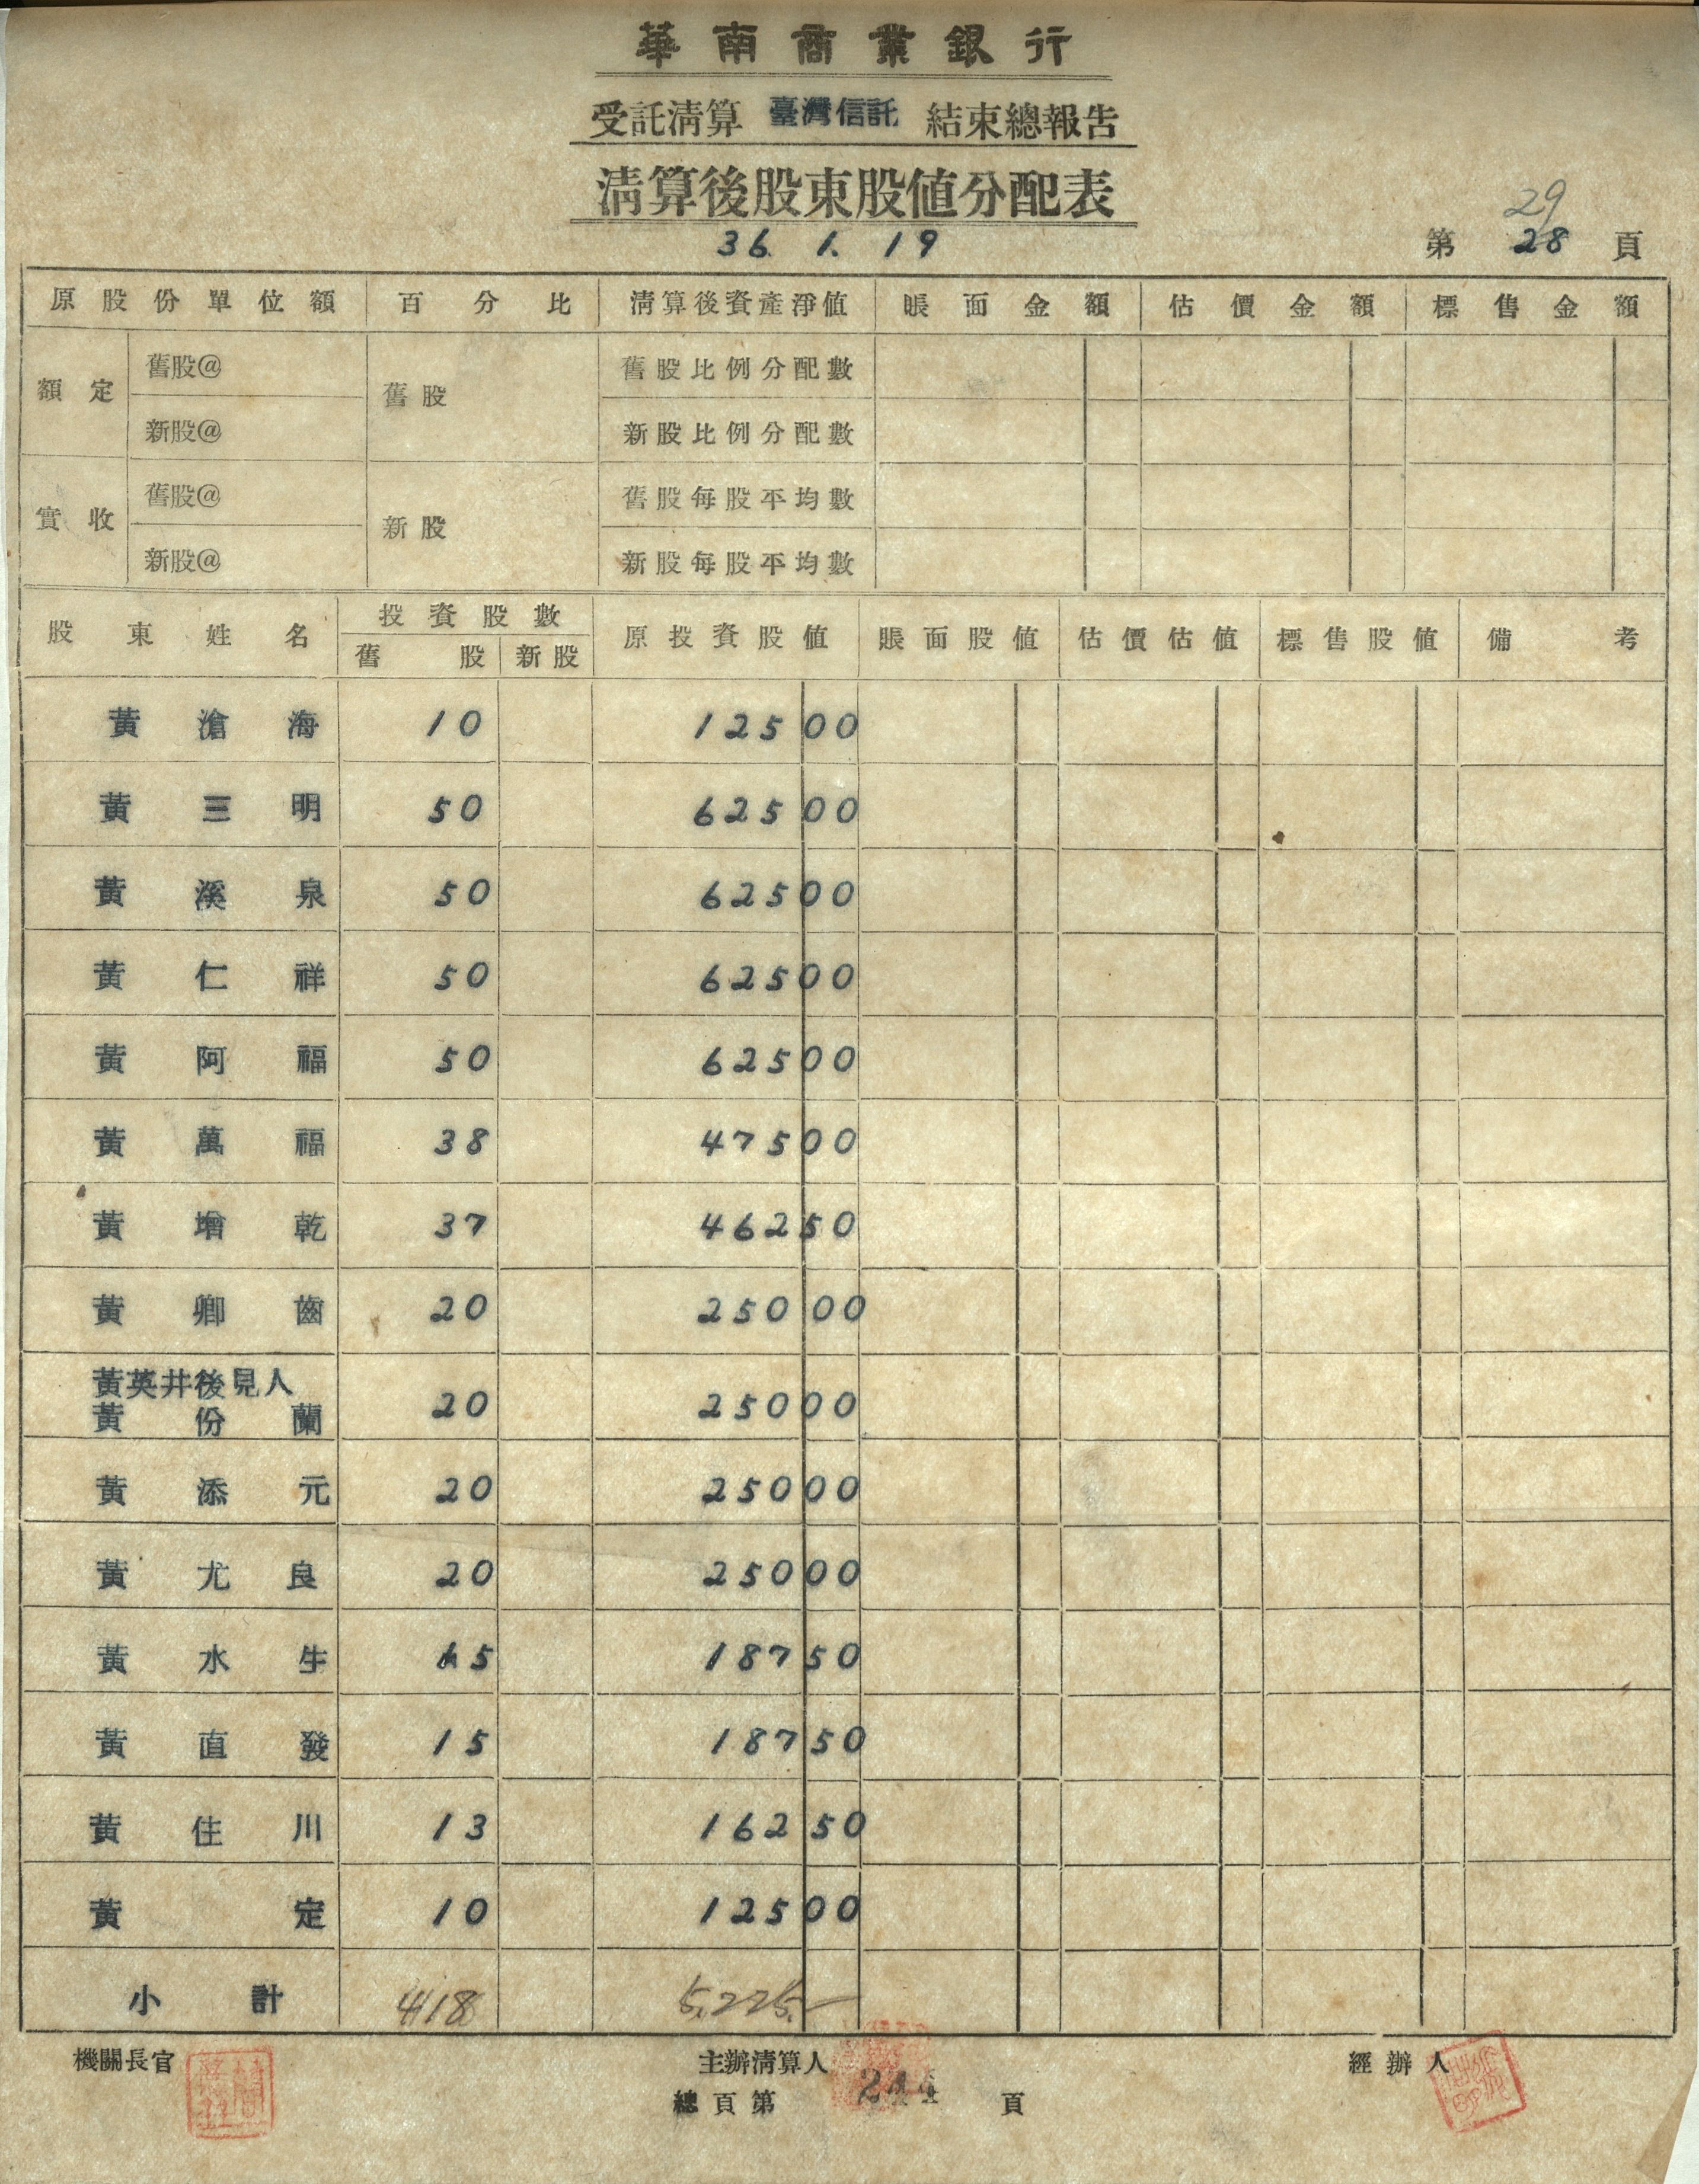 華南商業銀行
受託清算 臺灣信託 結束總報告
清算後股東股值分配表
36. 1. 19
29
第 28 頁
原股份單位額 百分比 清算後資產淨值 賬面金額 估價金額 標售金額
額定 舊股@ 舊股 舊股比例分配數
新股@ 新股比例分配數
實收 舊股@ 新股 舊股每股平均數
新股@ 新股每股平均數
股東姓名 投資股數 原投資股值 賬面股值 估價估值 標售股值 備考
舊股 新股
黃滄海 10 125 00
黃三明 50 625 00
黃溪泉 50 625 00
黃仁祥 50 625 00
黃阿福 50 625 00
黃萬福 38 475 00
黃增乾 37 462 50
黃卿齒 20 250 00
黃英井後見人
黃份蘭 20 250 00
黃添元 20 250 00
黃尤良 20 250 00
黃水生 15 187 50
黃直發 15 187 50
黃住川 13 162 50
黃定 10 125 00
小計 418 5,225.—
機關長官 主辦清算人 經辦人
總頁第 頁